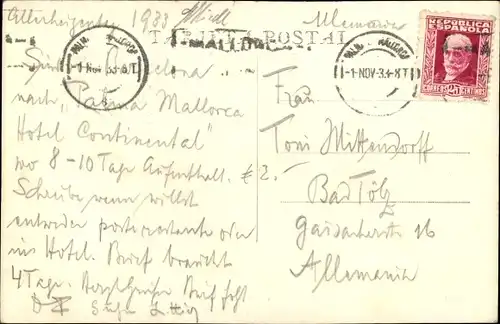 Allerheiligen 1933
Alemania
TARJETA POSTAL
MALLORCA
REPUBLICA
ESPAÑOLA
25
1 NOV 33
-1 NOV -33
Sind
nach "Palma Mallorca
Hotel Continental"
wo 8-10 Tage Aufenthalt.
Schreibe wenn willst
entweder poste restante oder
ins Hotel. Brief braucht
4 Tage.
Frau
Toni Mittendorff
Bad Tölz
16
Allemania